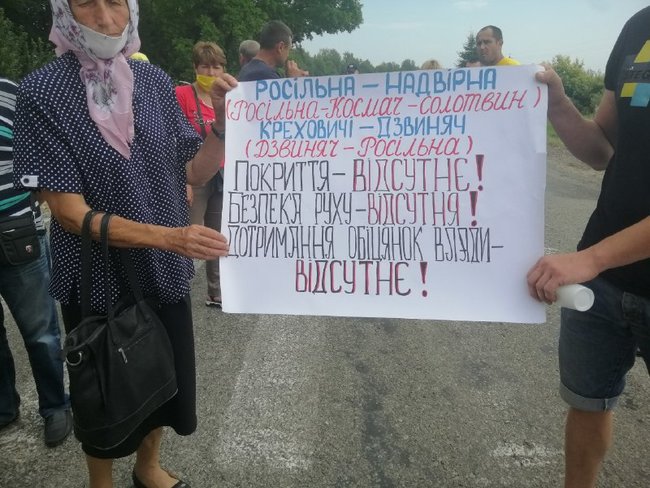 РОСІЛЬНА – НАДВІРНА
(РОСІЛЬНА-КОСМАЧ-СОЛОТВИН)
КРЕХОВИЧІ – ДЗВИНЯЧ
(ДЗВИНЯЧ – РОСІЛЬНА)
ПОКРИТТЯ – ВІДСУТНЄ!
БЕЗПЕКА РУХУ – ВІДСУТНЯ!
ДОТРИМАННЯ ОБІЦЯНОК ВЛАДИ –
ВІДСУТНЄ!